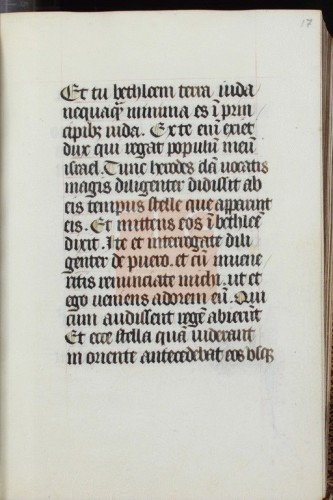 17
Et tu bethleem terra iuda
nequaqȝ minima es ī prin
cipibȝ iuda. Ex te eni̅ exiet
dux qui regat populu̅ meu̅
israel. Tunc herodes cla̅ uocatis
magis diligenter didissit ab
eis tempus stelle que apparuit
eis. Et mittens eos ī bethlee̅
dixit. Ite et interrogate dili
genter de puero. et cu̅ inuene
ritis renunciate michi. ut et
ego ueniens adorem eu̅. Qui
cum audissent rege̅ abieru̅t
Et ecce stella qua̅ uiderant
in oriente antecedebat eos usqȝ